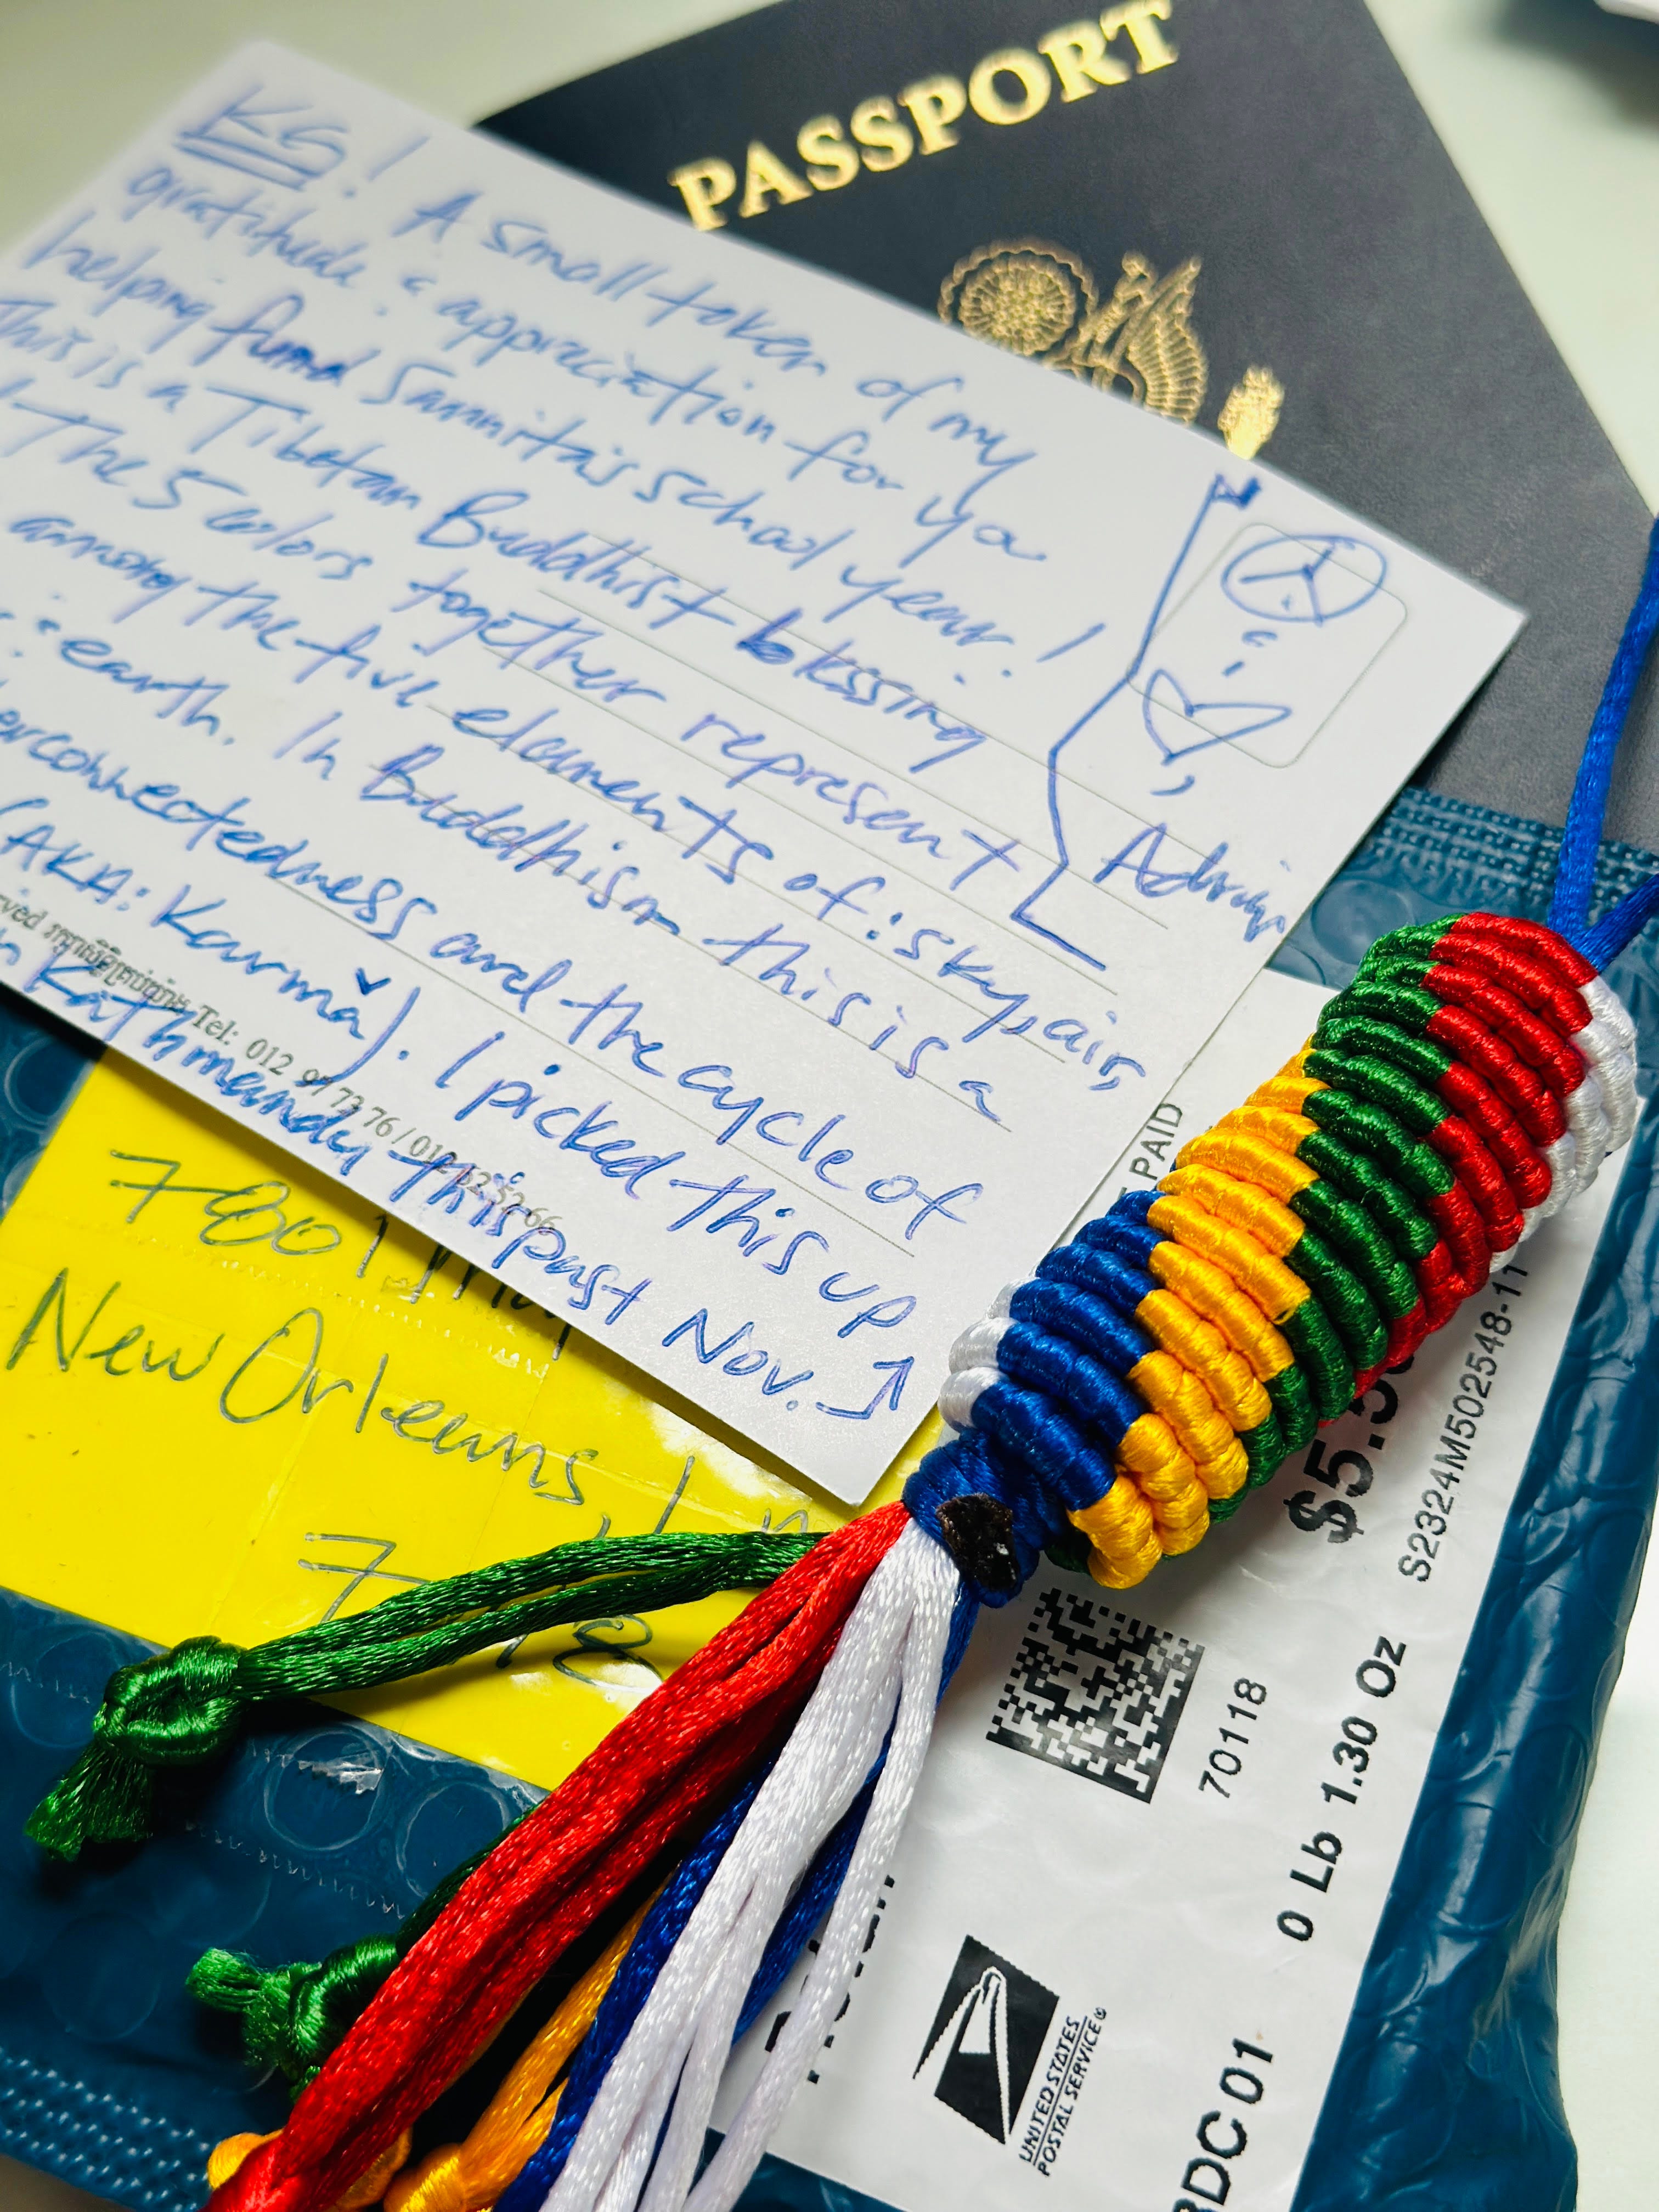 PASSPORT
KS! A small token of my
gratitude & appreciation for ya
helping fund Samrita's school year!
This is a Tibetan Buddhist blessing
The 5 colors together represent
among the five elements of: sky, air,
& earth. In Buddhism this is a
erconnectedness and the cycle of
(AKA: Karma). I picked this up
n Kathmandu this past Nov.
&
,
rved
Tel: 012 97 73 76 /
7801
New Orleans, L
7
PAID
$5.5
S2324M502548-11
70118
0 Lb 1.30 Oz
UNITED STATES
POSTAL SERVICE®
RDC 01